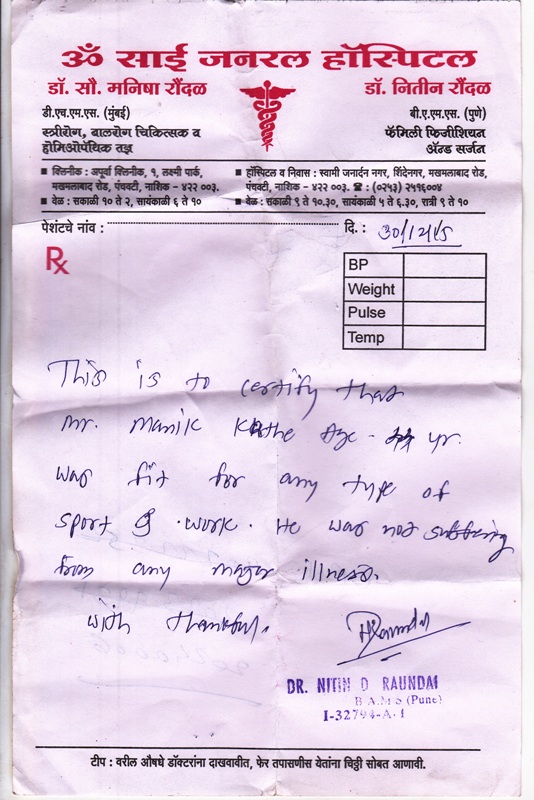 ॐ साई जनरल हॉस्पिटल
डॉ. सौ. मनिषा रौंदळ
डी.एच.एम.एस. (मुंबई)
स्त्रीरोग, बालरोग चिकित्सक व
होमिओपॅथिक तज्ञ
डॉ. नितीन रौंदळ
बी.ए.एम.एस. (पुणे)
फॅमिली फिजीशियन
ॲन्ड सर्जन
■ क्लिनीक : अपूर्वा क्लिनीक, १, लक्ष्मी पार्क,
मखमलाबाद रोड, पंचवटी, नाशिक - ४२२ ००३.
■ वेळ : सकाळी १० ते २, सायंकाळी ६ ते १०
■ हॉस्पिटल व निवास : स्वामी जनार्दन नगर, शिंदेनगर, मखमलाबाद रोड,
पंचवटी, नाशिक - ४२२ ००३. ☎ : (०२५३) २५१६००४
■ वेळ : सकाळी ९ ते १०.३०, सायंकाळी ५ ते ६.३०, रात्री ९ ते १०
पेशंटचे नांव :
दि. : 30/12/15
Rx
BP
Weight
Pulse
Temp
This is to certify that
mr. Manik Kathe Age - yr.
was fit for any type of
sport & work. He was not suffering
from any major illness.
with thankful.
DR. NITIN D RAUNDAL
B A M S (Pune)
I-32794-A-1
टीप : वरील औषधे डॉक्टरांना दाखवावीत, फेर तपासणीस येतांना चिठ्ठी सोबत आणावी.